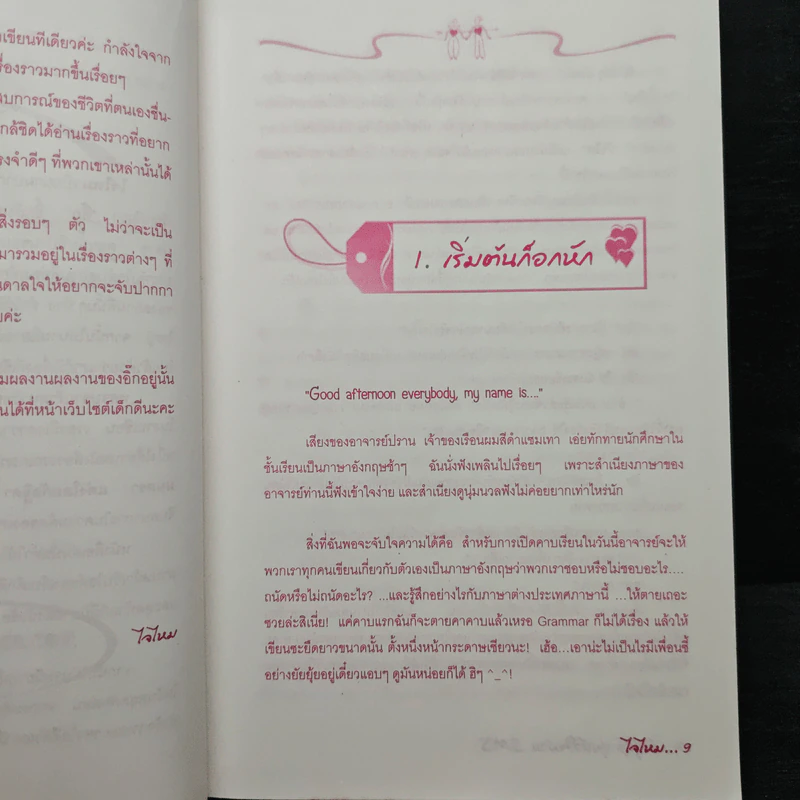 เขียนทีเดียวค่ะ กำลังใจจาก
รื่องราวมากขึ้นเรื่อยๆ
บการณ์ของชีวิตที่ตนเองชื่น-
กล้ชิดได้อ่านเรื่องราวที่อยาก
รงจำดีๆ ที่พวกเขาเหล่านั้นได้
สิ่งรอบๆ ตัว ไม่ว่าจะเป็น
มารวมอยู่ในเรื่องราวต่างๆ ที่
ดาลใจให้อยากจะจับปากกา
ค่ะ
มผลงานผลงานของอิ๊กอยู่นั้น
นได้ที่หน้าเว็บไซต์เด็กดีนะคะ
ใจไหม
1. เริ่มต้นก็อกหัก
"Good afternoon everybody, my name is...."
เสียงของอาจารย์ปราน เจ้าของเรือนผมสีดำแซมเทา เอ่ยทักทายนักศึกษาใน
ชั้นเรียนเป็นภาษาอังกฤษช้าๆ ฉันนั่งฟังเพลินไปเรื่อยๆ เพราะสำเนียงภาษาของ
อาจารย์ท่านนี้ฟังเข้าใจง่าย และสำเนียงดูนุ่มนวลฟังไม่ค่อยยากเท่าไหร่นัก
สิ่งที่ฉันพอจะจับใจความได้คือ สำหรับการเปิดคาบเรียนในวันนี้อาจารย์จะให้
พวกเราทุกคนเขียนเกี่ยวกับตัวเองเป็นภาษาอังกฤษว่าพวกเราชอบหรือไม่ชอบอะไร....
ถนัดหรือไม่ถนัดอะไร? ...และรู้สึกอย่างไรกับภาษาต่างประเทศภาษานี้ ...ให้ตายเถอะ
ซวยล่ะสิเนี่ย! แค่คาบแรกฉันก็จะตายคาคาบแล้วเหรอ Grammar ก็ไม่ได้เรื่อง แล้วให้
เขียนซะยืดยาวขนาดนั้น ตั้งหนึ่งหน้ากระดาษเชียวนะ! เฮ้อ...เอาน่ะไม่เป็นไรมีเพื่อนซี้
อย่างยัยยุ้ยอยู่เดี๋ยวแอบๆ ดูมันหน่อยก็ได้ ฮิๆ ^_^!
ใจไหม... 9